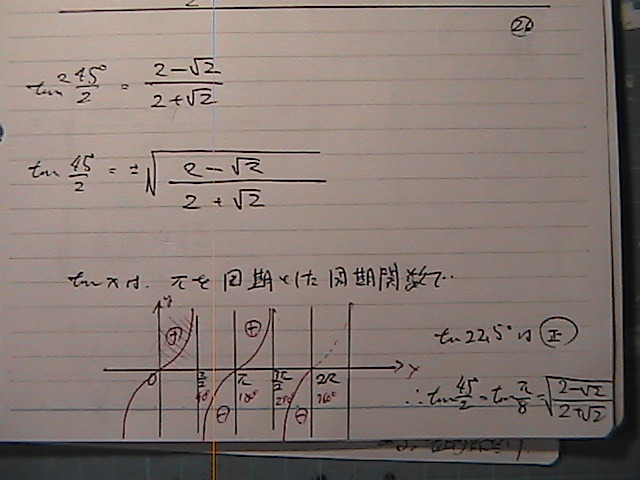 26
tan² 45°/2 = 2-√2 / 2+√2
tan 45°/2 = ±√(2-√2 / 2+√2)
tan x は、πを周期とした周期関数で…
y
tan 22.5° は
0 π/2 π 3π/2 2π x
90° 180° 270° 360°
∴ tan 45°/2 = tan π/8 = √(2-√2 / 2+√2)